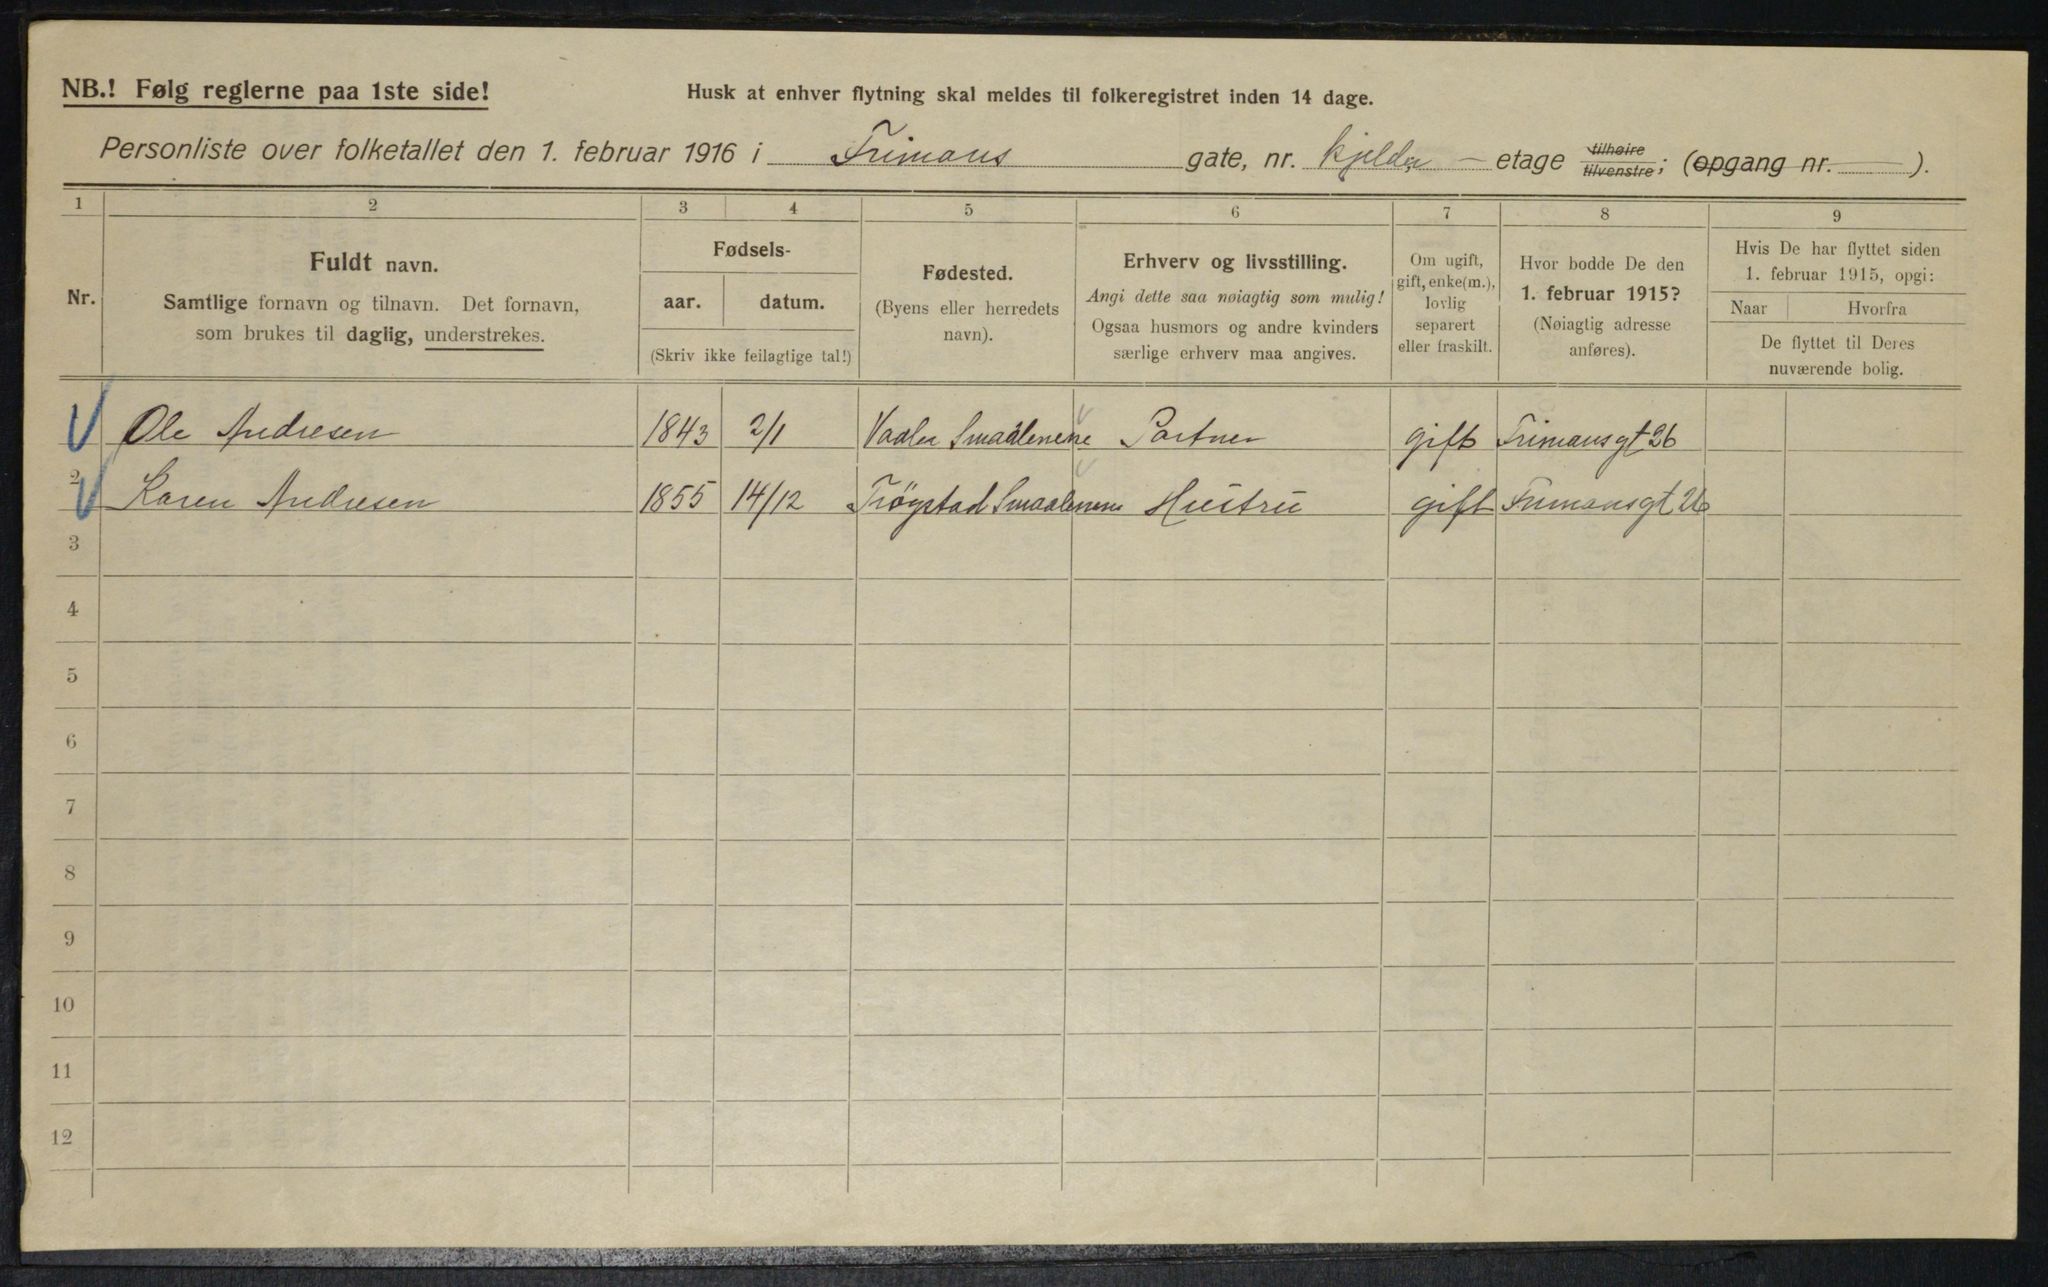 NB.! Følg reglerne paa 1ste side!
Husk at enhver flytning skal meldes til folkeregistret inden 14 dage.
Personliste over folketallet den 1. februar 1916 i Frimans gate, nr. kjelder — etage tilhøire tilvenstre; (opgang nr. ).
1 2 3 4 5 6 7 8 9
Nr.
Fuldt navn.
Samtlige fornavn og tilnavn. Det fornavn,
som brukes til daglig, understrekes.
Fødsels-
aar. datum.
(Skriv ikke feilagtige tal!)
Fødested.
(Byens eller herredets
navn).
Erhverv og livsstilling.
Angi dette saa nøiagtig som mulig!
Ogsaa husmors og andre kvinders
særlige erhverv maa angives.
Om ugift,
gift, enke(m.),
lovlig
separert
eller fraskilt.
Hvor bodde De den
1. februar 1915?
(Nøiagtig adresse
anføres).
Hvis De har flyttet siden
1. februar 1915, opgi:
Naar Hvorfra
De flyttet til Deres
nuværende bolig.
Ole Andresen 1843 2/1 Vaaler Smaalenene Portner gift Frimansgt 26
2 Karen Andresen 1855 14/12 Trøgstad Smaalenene Hustru gift Frimansgt 26
3
4
5
6
7
8
9
10
11
12